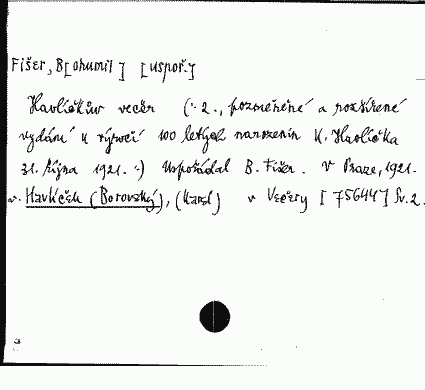 Fišer, B[ohumil] [uspoř.]
Havlíčkův večer (: 2., pozměněné a rozšířené
vydání k výročí 100 letých narozenin K. Havlíčka
31. října 1921. :) Uspořádal B. Fišer. V Praze, 1921.
v. Havlíček (Borovský), (Karel) v Večery [75644] Sv. 2.